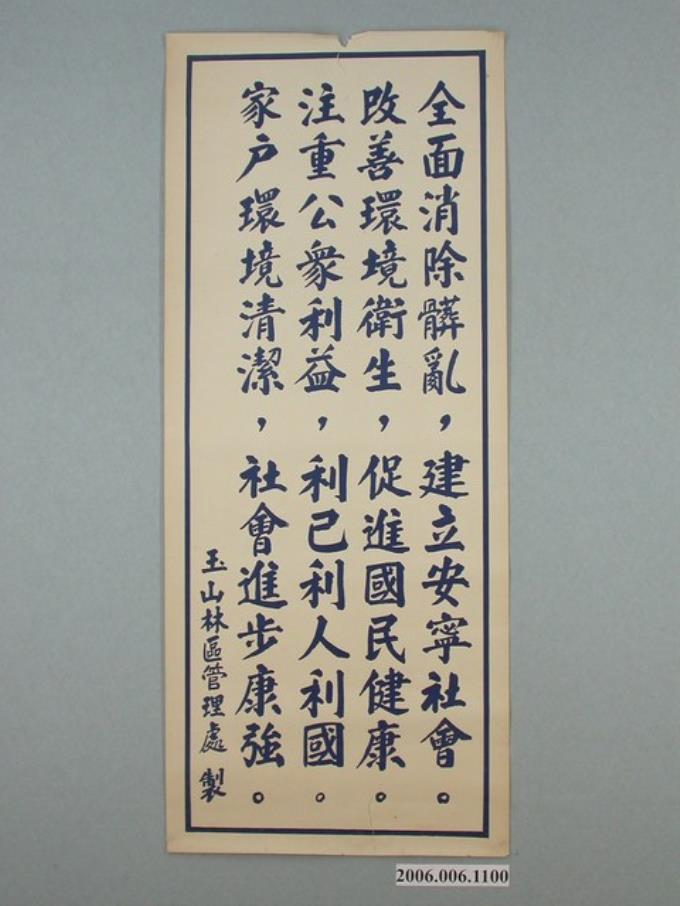 全面消除髒亂，建立安寧社會。
改善環境衛生，促進國民健康。
注重公眾利益，利己利人利國。
家戶環境清潔，社會進步康強。
玉山林區管理處 製
2006.006.1100